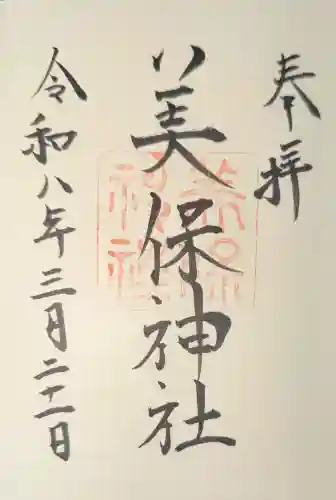 奉拝
美保神社
令和八年三月二十一日